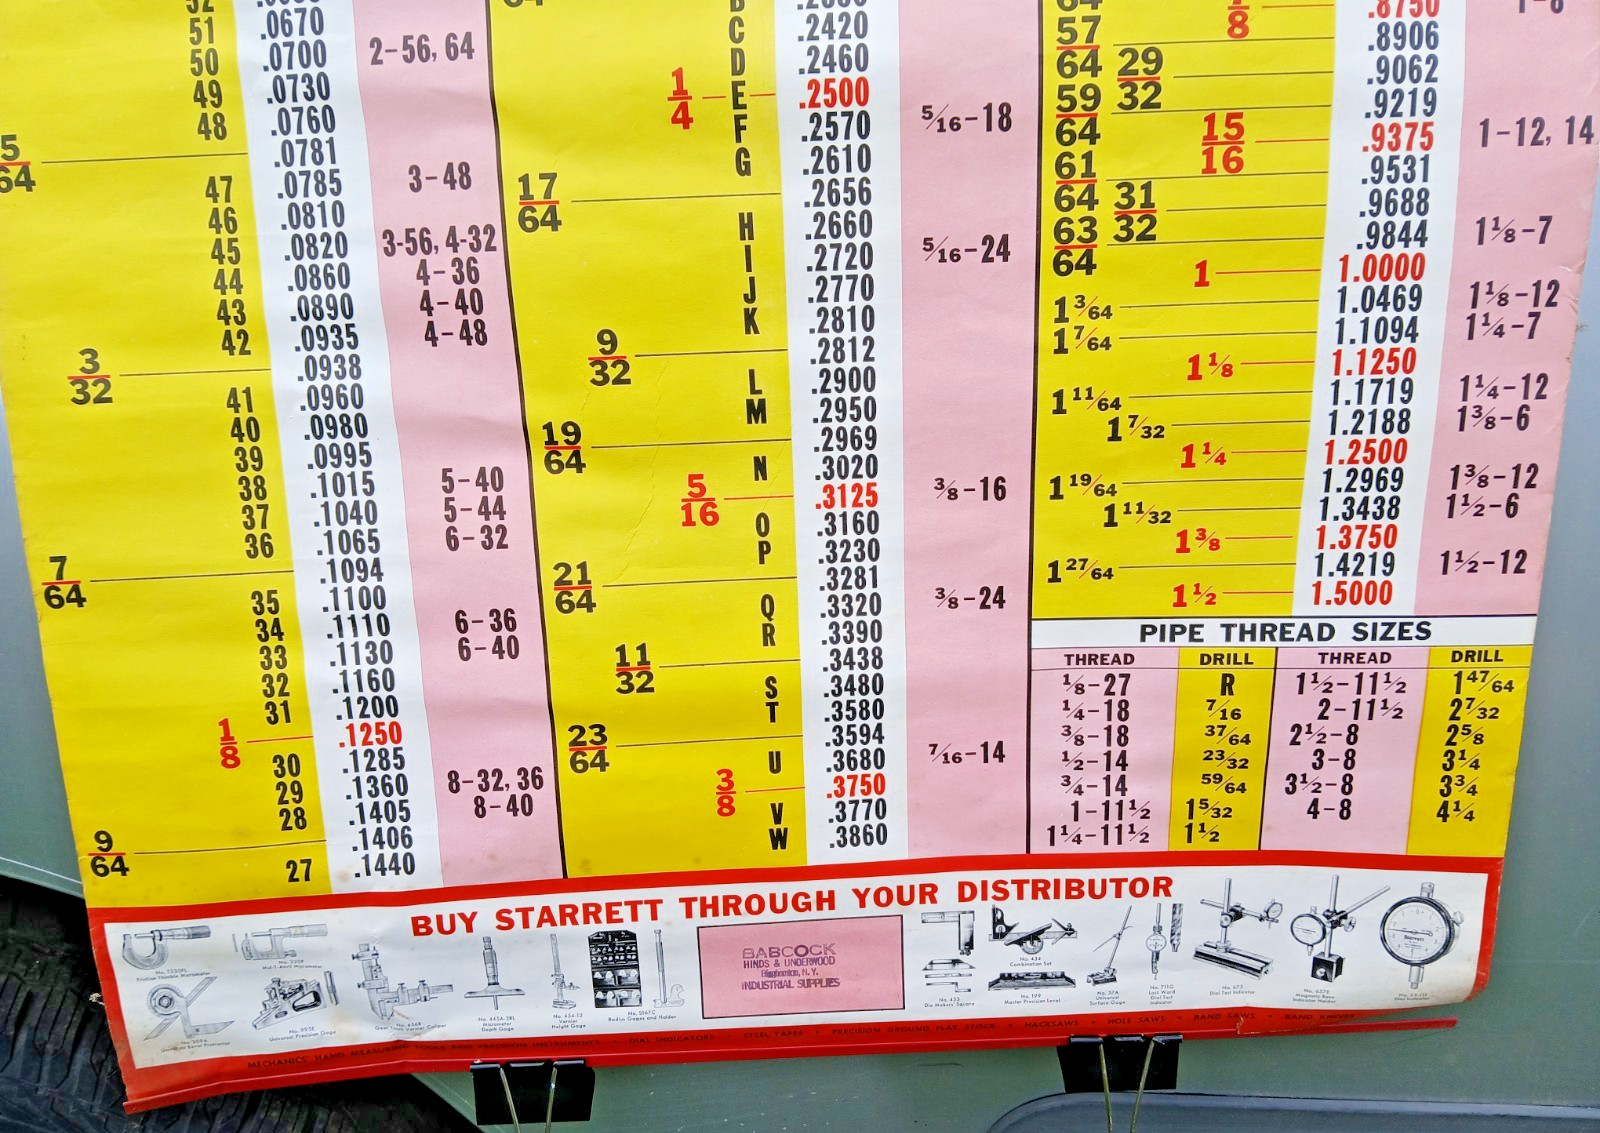 52
51 .0670
50 .0700 2-56, 64
49 .0730
48 .0760
5/64 .0781
47 .0785 3-48
46 .0810
45 .0820 3-56, 4-32
44 .0860 4-36
43 .0890 4-40
42 .0935 4-48
3/32 .0938
41 .0960
40 .0980
39 .0995
38 .1015 5-40
37 .1040 5-44
36 .1065 6-32
7/64 .1094
35 .1100
34 .1110 6-36
33 .1130 6-40
32 .1160
31 .1200
1/8 .1250
30 .1285
29 .1360 8-32, 36
28 .1405 8-40
9/64 .1406
27 .1440
C .2420
D .2460
1/4 E .2500
F .2570 5/16-18
G .2610
17/64 .2656
H .2660
I .2720 5/16-24
J .2770
K .2810
9/32 .2812
L .2900
M .2950
19/64 .2969
N .3020
5/16 .3125 3/8-16
O .3160
P .3230
21/64 .3281
Q .3320 3/8-24
R .3390
11/32 .3438
S .3480
T .3580
23/64 .3594
U .3680 7/16-14
3/8 .3750
V .3770
W .3860
7/8 .8750
57/64 .8906
29/32 .9062
59/64 .9219
15/16 .9375 1-12, 14
61/64 .9531
31/32 .9688
63/64 .9844 1 1/8-7
1 1.0000
1 3/64 1.0469 1 1/8-12
1 7/64 1.1094 1 1/4-7
1 1/8 1.1250
1 11/64 1.1719 1 1/4-12
1 7/32 1.2188 1 3/8-6
1 1/4 1.2500
1 19/64 1.2969 1 3/8-12
1 11/32 1.3438 1 1/2-6
1 3/8 1.3750
1 27/64 1.4219 1 1/2-12
1 1/2 1.5000
PIPE THREAD SIZES
THREAD DRILL THREAD DRILL
1/8-27 R 1 1/2-11 1/2 1 47/64
1/4-18 7/16 2-11 1/2 2 7/32
3/8-18 37/64 2 1/2-8 2 5/8
1/2-14 23/32 3-8 3 1/4
3/4-14 59/64 3 1/2-8 3 3/4
1-11 1/2 1 5/32 4-8 4 1/4
1 1/4-11 1/2 1 1/2
BUY STARRETT THROUGH YOUR DISTRIBUTOR
BABCOCK
HINDS & UNDERWOOD
Binghamton, N. Y.
INDUSTRIAL SUPPLIES
Mul-T-Anvil Micrometer
Universal Precision Gage
Micrometer
Depth Gage
Vernier
Height Gage
Radius Gages and Holder
No. 453
Die Makers' Square
No. 434
Combination Set
No. 199
Master Precision Level
No. 57A
Universal
Surface Gage
No. 711G
Last Word
Dial Test
Indicator
No. 675
Dial Test Indicator
Magnetic Base
Indicator Holder
Dial Indicator
MECHANICS' HAND MEASURING TOOLS AND PRECISION INSTRUMENTS • DIAL INDICATORS • STEEL TAPES • PRECISION GROUND FLAT STOCK • HACKSAWS • HOLE SAWS • BAND SAWS • BAND KNIVES